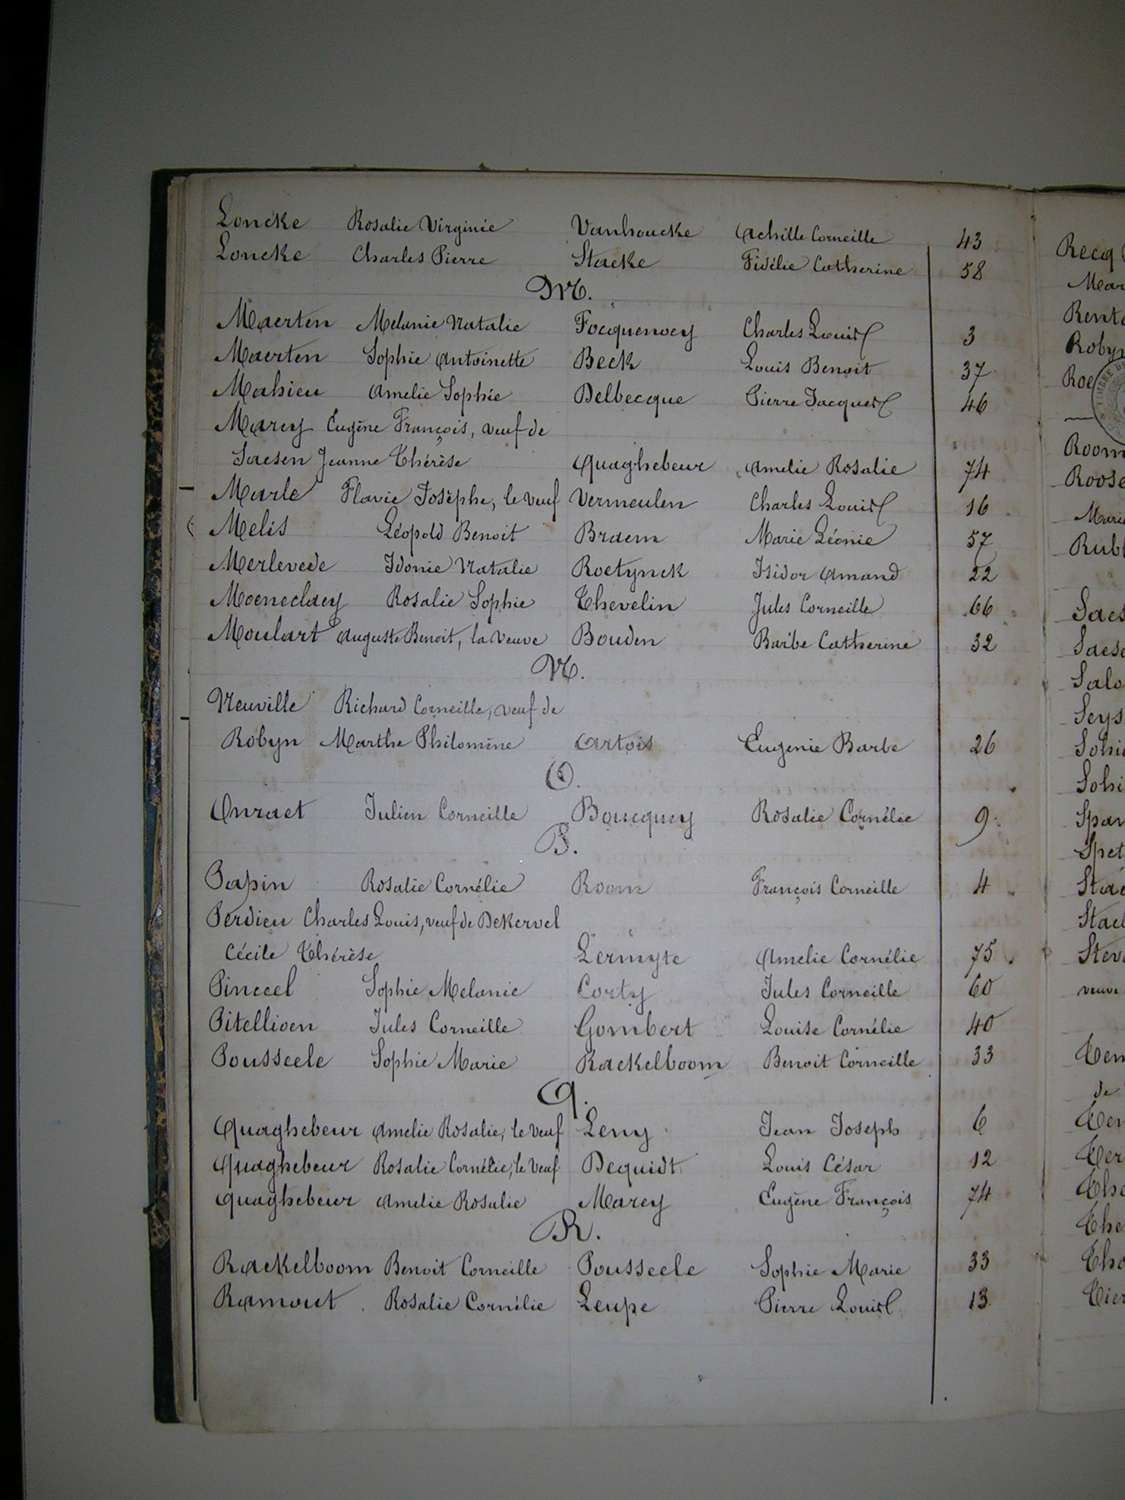 Loncke Rosalie Virginie Vanhoucke Achille Corneille 43
Loncke Charles Pierre Stacke Fidélie Catherine 58
M.
Maerten Melanie Natalie Focquenoey Charles Louis 3
Maerten Sophie Antoinette Beck Louis Benoit 37
Mahieu Amelie Sophie Delbecque Pierre Jacques 46
Marcy Eugène François, veuf de
Saesen Jeanne Thérèse Quaghebeur Amelie Rosalie 74
Marle Flavie Josèphe, le veuf Vermeulen Charles Louis 16
Melis Léopold Benoit Braem Marie Léonie 57
Merlevede Idonie Natalie Roetynck Isidor Amand 22
Moeneclaey Rosalie Sophie Thevelin Jules Corneille 66
Moulart Auguste Benoit, la veuve Bouden Barbe Catherine 32
N.
Neuville Richard Corneille, veuf de
Robyn Marthe Philomène Artois Eugenie Barbe 26
O.
Onraet Julien Corneille Boucquey Rosalie Cornélie 9
P.
Papin Rosalie Cornélie Room François Corneille 4
Perdieu Charles Louis, veuf de Dekervel
Cécile Thérèse Lermyte Amelie Cornélie 75
Pinceel Sophie Melanie Corty Jules Corneille 60
Pitellioen Jules Corneille Gombert Louise Cornélie 40
Pousseele Sophie Marie Rackelboom Benoit Corneille 33
Q.
Quaghebeur Amelie Rosalie, le veuf Leny Jean Joseph 6
Quaghebeur Rosalie Cornélie, le veuf Dequidt Louis César 12
Quaghebeur Amelie Rosalie Marcy Eugène François 74
R.
Rackelboom Benoit Corneille Pousseele Sophie Marie 33
Ramout Rosalie Cornélie Leupe Pierre Louis 13
Recq
veuve
de